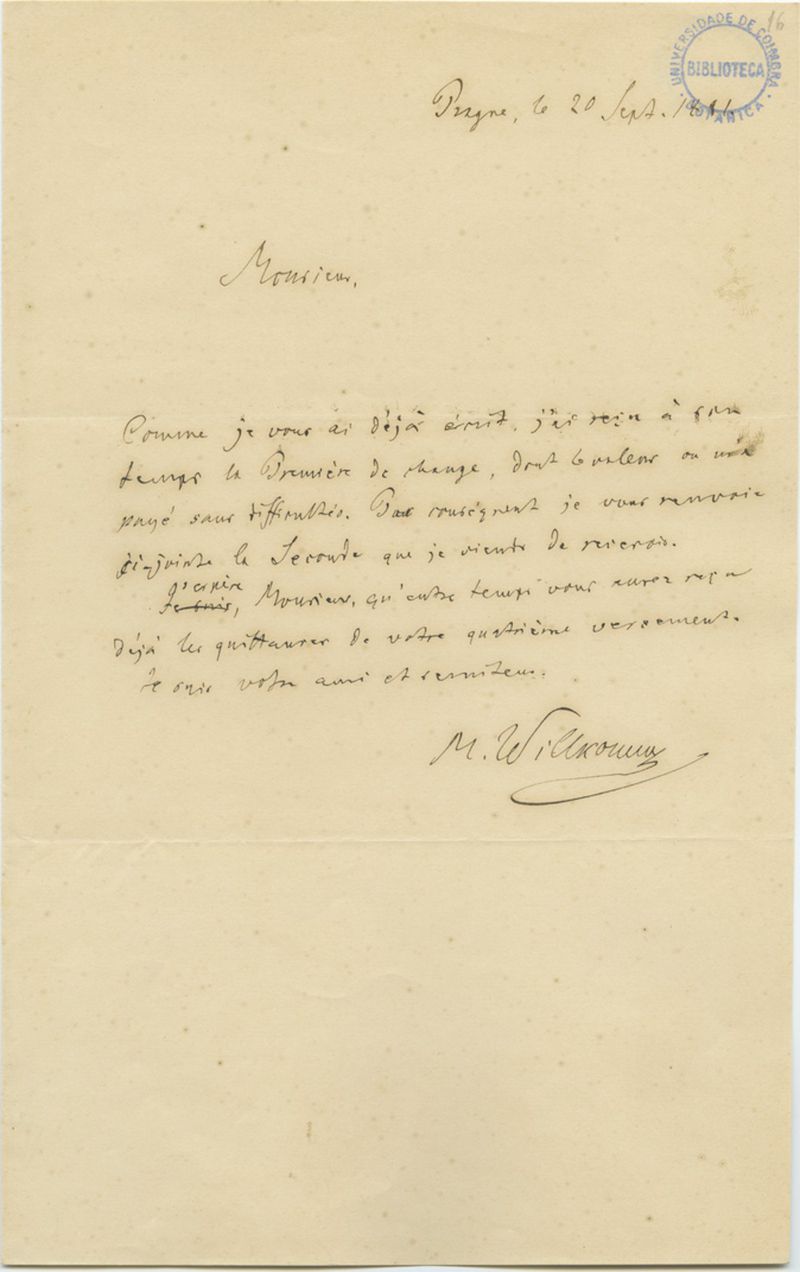 16
UNIVERSIDADE DE COIMBRA
BIBLIOTECA
BOTANICA
Prague, le 20 Sept.
Monsieur,
Comme je vous ai déjà écrit, j'ai reçu à son
temps la Première de change, dont la valeur on m'a
payé sans difficultés. Par conséquent je vous renvoie
ci-jointe la Seconde que je viens de recevoir.
J'espère
Je suis, Monsieur, qu'entre temps vous aurez reçu
déjà les quittances de votre quatrième versement.
Je suis votre ami et serviteur.
M. Willkomm